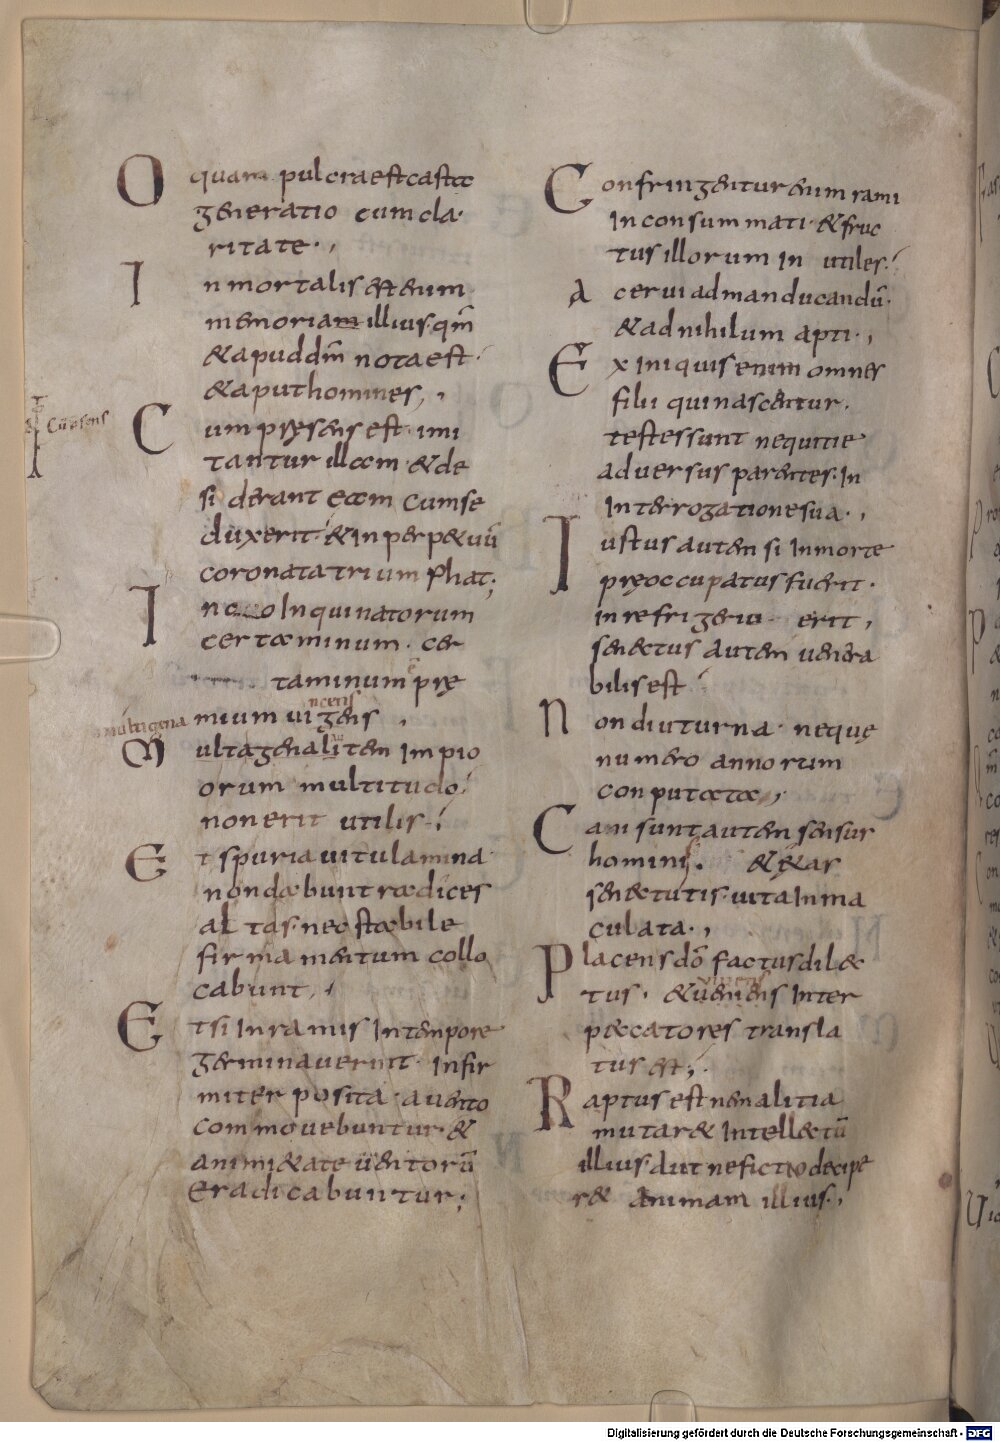 O quam pulcra est casta
generatio cum cla
ritate.,
In mortalis est enim
memoria illius. qm̄
& apud dm̄ nota est
& aput homines,.
Cum pręsens est imi
tantur illam & de
siderant eam cum se
duxerit. & in perpetuū
coronata triumphat;
In co inquinatorum
certaminum. cer
taminum prę
mium uigens.,
multigena
Multagena litem impio
orum multitudo;
non erit utilis.;
Et spuria uitulamina
non dabunt radices
altas. nec stabile
firmamentum collo
cabunt,.
Et si in ramis in tempore
germinauerint. infir
miter posita. a uento
commouebuntur. &
a nimietate uentorū
eradicabuntur;
Confringentur enim rami
inconsummati. & fruc
tus illorum in utiles.
Acerui ad manducandū.
& ad nihilum apti.,
Ex iniquis enim omnes
filii qui nascentur.
testes sunt nequitie
aduersus parentes. In
interrogatione sua.,
Iustus autem si in morte
pręoccupatus fuerit.
in refrigerio erit,
senectus autem uenera
bilis est
Non diuturna. neque
numero annorum
conputata,
Cani sunt autem sensus
hominis. & &as
senectutis. uita inma
culata.,
Placens dō factus dilec
tus. & uiuens inter
peccatores transla
tus est;
Raptus est ne malitia
mutaret intellectū
illius. aut ne fictio decipe
ret animam illius.,